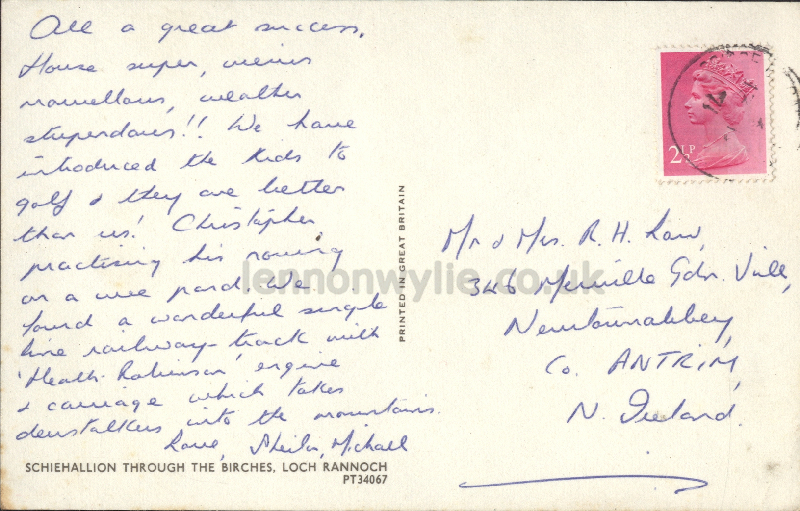 All a great success.
House super, views
marvellous, weather
stupendous!! We have
introduced the kids to
golf & they are better
than us! Christopher
practising his rowing
on a wee pond. We
found a wonderful single
line railway-track with
'Heath Robinson' engine
& carriage which takes
deerstalkers into the mountains.
Love, Sheila, Michael
SCHIEHALLION THROUGH THE BIRCHES, LOCH RANNOCH
PT34067
PRINTED IN GREAT BRITAIN
2½P
Mr & Mrs. R. H. Law,
346 Merville Gdn. Vill,
Newtownabbey,
Co. ANTRIM,
N. Ireland.
lennonwylie.co.uk